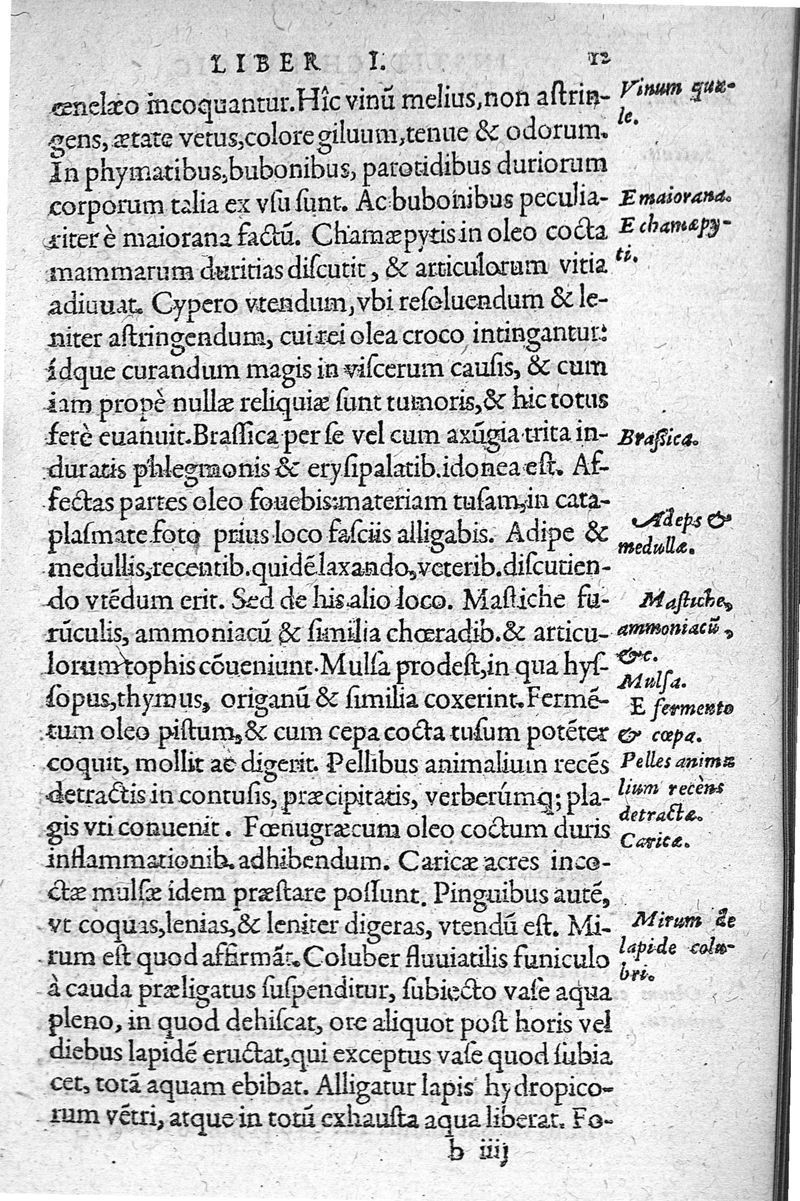 LIBER I. 12
œnelæo incoquantur. Hîc vinũ melius, non astrin-
gens, ætate vetus, colore giluum, tenue & odorum.
In phymatibus, bubonibus, parotidibus duriorum
corporum talia ex vsu sunt. Ac bubonibus peculia-
riter è maiorana factũ. Chamæpytis in oleo cocta
mammarum duritias discutit, & articulorum vitia
adiuuat. Cypero vtendum, vbi resoluendum & le-
niter astringendum, cui rei olea croco intingantur:
idque curandum magis in viscerum causis, & cum
iam propè nullæ reliquiæ sunt tumoris, & hic totus
ferè euanuit. Brassica per se vel cum axũgia trita in-
duratis phlegmonis & erysipalatib. idonea est. Af-
fectas partes oleo fouebis: materiam tusam, in cata-
plasmate foto prius loco fasciis alligabis. Adipe &
medullis, recentib. quidẽ laxando, veterib. discutien-
do vtẽdum erit. Sed de his alio loco. Mastiche fu-
rũculis, ammoniacũ & similia chœradib. & articu-
lorum tophis cõueniunt. Mulsa prodest, in qua hys-
sopus, thymus, origanũ & similia coxerint. Fermẽ-
tum oleo pistum, & cum cepa cocta tusum potẽter
coquit, mollit ac digerit. Pellibus animalium recẽs
detractis in contusis, præcipitatis, verberúmq; pla-
gis vti conuenit. Fœnugræcum oleo coctum duris
inflammationib. adhibendum. Caricæ acres inco-
ctæ mulsæ idem præstare possunt. Pinguibus autẽ,
vt coquas, lenias, & leniter digeras, vtendũ est. Mi-
rum est quod affirmãt. Coluber fluuiatilis funiculo
à cauda præligatus suspenditur, subiecto vase aqua
pleno, in quod dehiscat, ore aliquot post horis vel
diebus lapidẽ eructat, qui exceptus vase quod subia
cet, totã aquam ebibat. Alligatur lapis hydropico-
rum vẽtri, atque in totũ exhausta aqua liberat. Fo-
b iiij
Vinum qua-
le.
E maiorana.
E chamæpy-
ti.
Brassica.
Adeps &
medullæ.
Mastiche,
ammoniacũ,
&c.
Mulsa.
E fermento
& cœpa.
Pelles anima
lium recèns
detractæ.
Caricæ.
Mirum de
lapide colu-
bri.